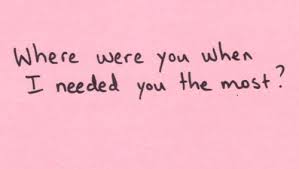 Where were you when
I needed you the most?